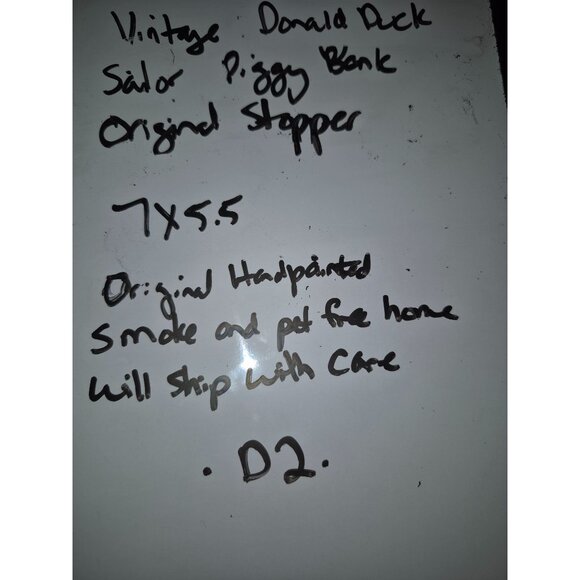 Vintage Donald Duck
Sailor Piggy Bank
Original Stopper
7x5.5
Original Handpainted
Smoke and pet free home
Will Ship with Care
. D2.